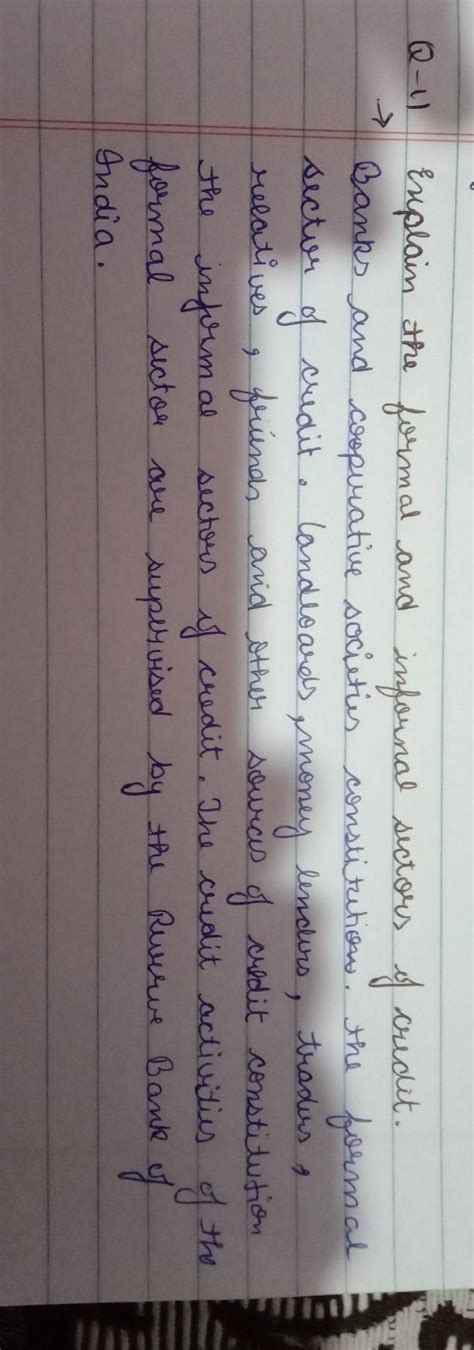 Q-11 Explain the formal and informal sectors of credit.
→ Banks and cooperative societies constitution. the formal
sector of credit. Landloards, money lenders, traders,
relatives, friends and other sources of credit constitution
the informal sectors of credit. The credit activities of the
formal sector are supervised by the Reserve Bank of
India.